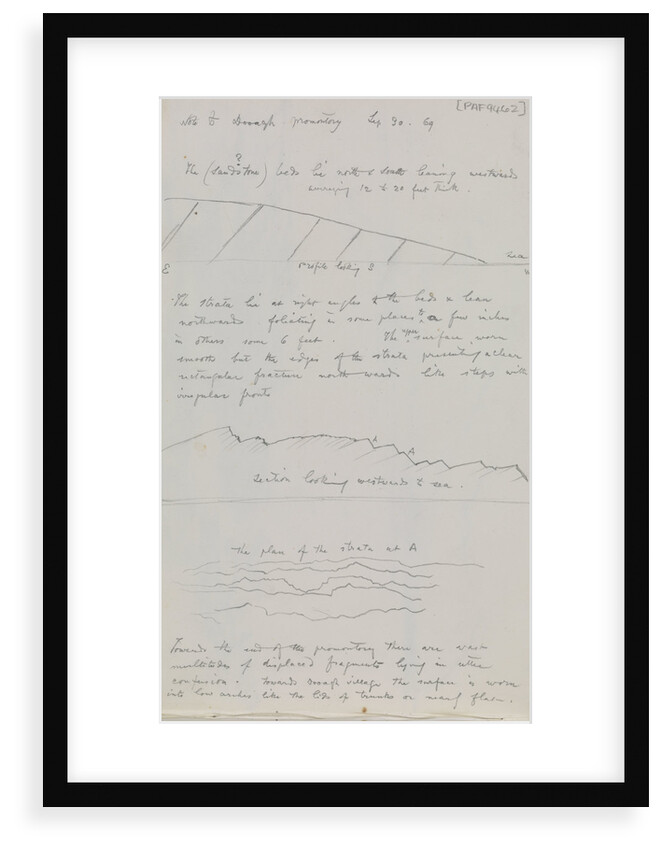 [PAF9462]
Dooagh promontory Sep 30. 69
?
The (sandstone) beds lie north & south leaning westwards
averaging 12 to 20 feet thick.
Sea
E
profile looking S
The strata lie at right angles to the beds & lean
northwards foliating in some places to a few inches
in others some 6 feet. The upper surface worn
smooth but the edges of the strata presenting a clear
rectangular fracture northwards like steps with
irregular fronts
A
section looking westward to sea.
The plan of the strata at A
Towards the end of the promontory there are vast
multitudes of displaced fragments lying in utter
confusion. Towards Dooagh village the surface is worn
into low arches like the lids of trunks or nearly flat.